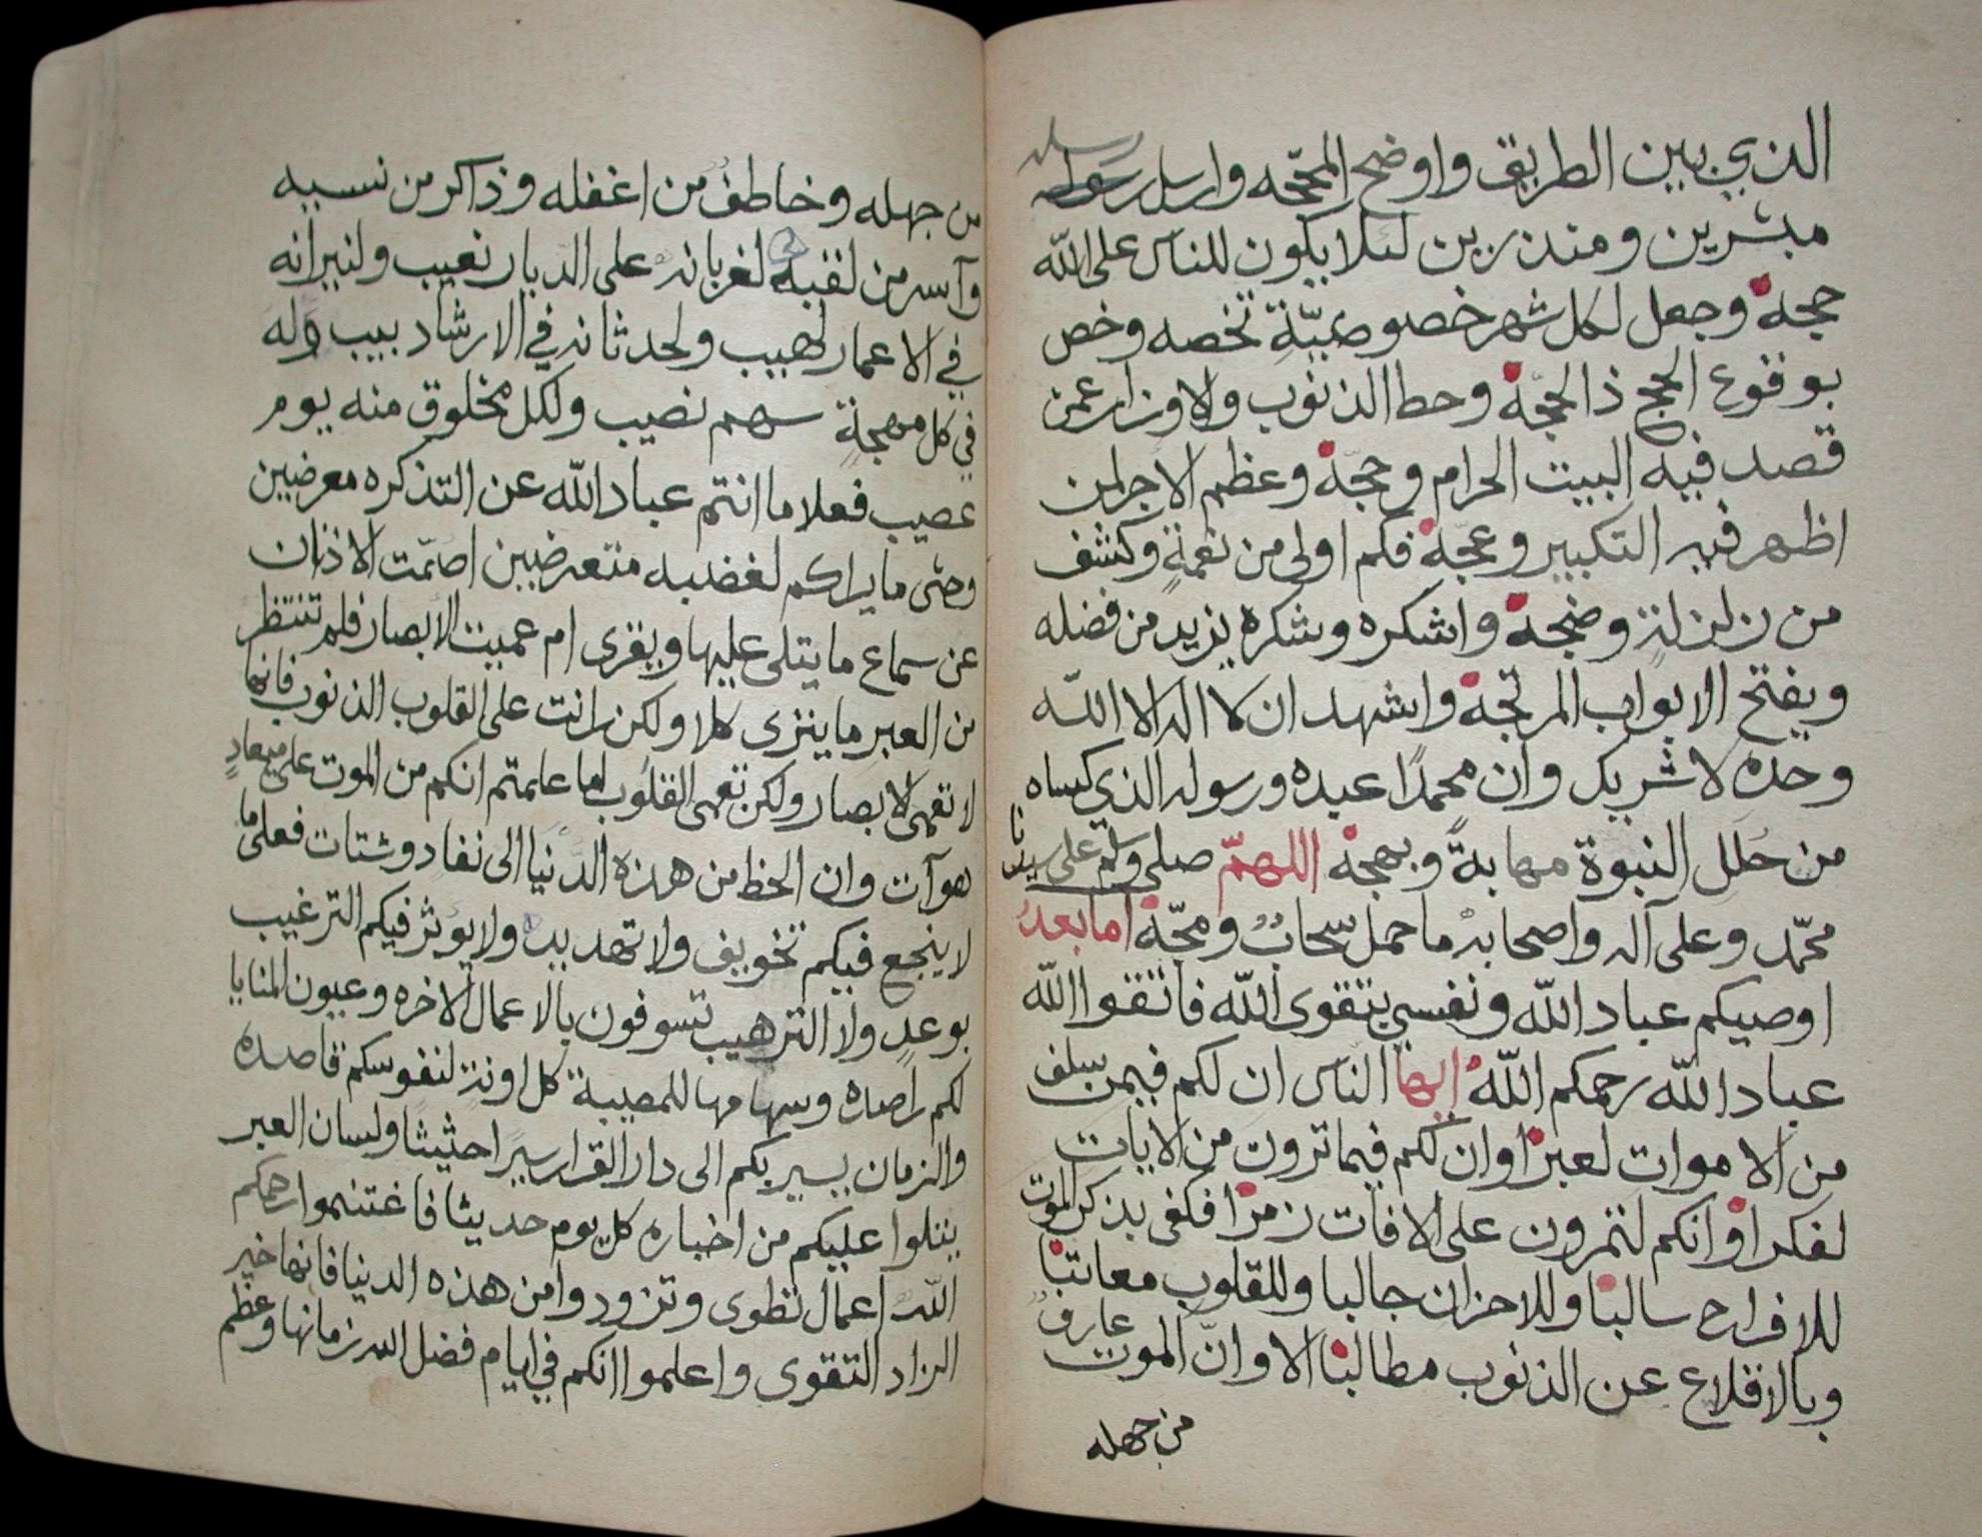 الذي بين الطريق واوضح المحجّه وارسل رسله
مبشرين ومنذرين لئلا يكون للناس على الله
حجة وجعل لكل شهر خصوصيّةٍ تخصه وخص
بوقوع الحج ذا الحجّة وحط الذنوب والاوزار عمن
قصد فيه البيت الحرام وحجّة وعظم الاجر لمن
اظهر فيه التكبير وعجّة فكم اولى من نعمةٍ وكشف
من زلزلةٍ وضجة واشكره وشكره يزيد من فضله
ويفتح الابواب المرتجة واشهد ان لا اله الا الله
وحده لا شريك وان محمدًا عبده ورسوله الذي كساه
من حُلل النبوة مهابةً وبهجة اللهمّ صلي وسلم على سيدنا
محمّد وعلى آله واصحابه ما حمل سحابٌ ومجّة اما بعد
اوصيكم عباد الله ونفسي بتقوى الله فاتقوا الله
عباد الله رحمكم الله ايها الناس ان لكم فيمن سلف
من الاموات لعبرًا وان لكم فيما ترون من الايات
لفكرا وانكم لتمرون على الافات زمرًا فكفى بذكر الموت
للافراح سالبًا وللاحزان جالبا وللقلوب معاتبًا
وبالاقلاع عن الذنوب مطالبًا الا وانّ الموت عارفٌ
من جهله
من جهله وخاطفٌ من اغفله وذاكر من نسيه
وآسر من لقيه لغربانه على الديار نعيب ولنيرانه
في الاعمار لهيب ولحدثانه في الارشاد بيب وله
في كل مهجةٍ سهم نصيب ولكل مخلوق منه يوم
عصيب فعلاما انتم عباد الله عن التذكره معرضين
وحتى ما يراكم لغضبه متعرضين اصمّت الاذان
عن سماع ما يتلى عليها ويقرى ام عميت الابصار فلم تنتظر
من العبر ما ينزى كلا ولكن رانت على القلوب الذنوب فانها
لا تعمى الابصار ولكن تعمى القلوب اما علمتم انكم من الموت على ميعادٍ
هوآت وان الحظ من هذه الدنيا الى نفاد وشتات فعلى ما
لا ينجع فيكم تخويف ولا تهديد ولا يؤثر فيكم الترغيب
بوعدٍ ولا الترهيب تسوفون بالاعمال الاخره وعيون المنايا
لكم راصده وسهامها للمصيبة كل اونةٍ لنفوسكم قاصده
والزمان يسير بكم الى دار القرار سيرًا حثيثا ولسان العبر
يتلوا عليكم من اخباره كل يوم حديثا فاغتنموا رحمكم
الله اعمال تطوى وتزودوا من هذه الدنيا فانها خير
الزاد التقوى واعلموا انكم في ايام فضل الله زمانها وعظم